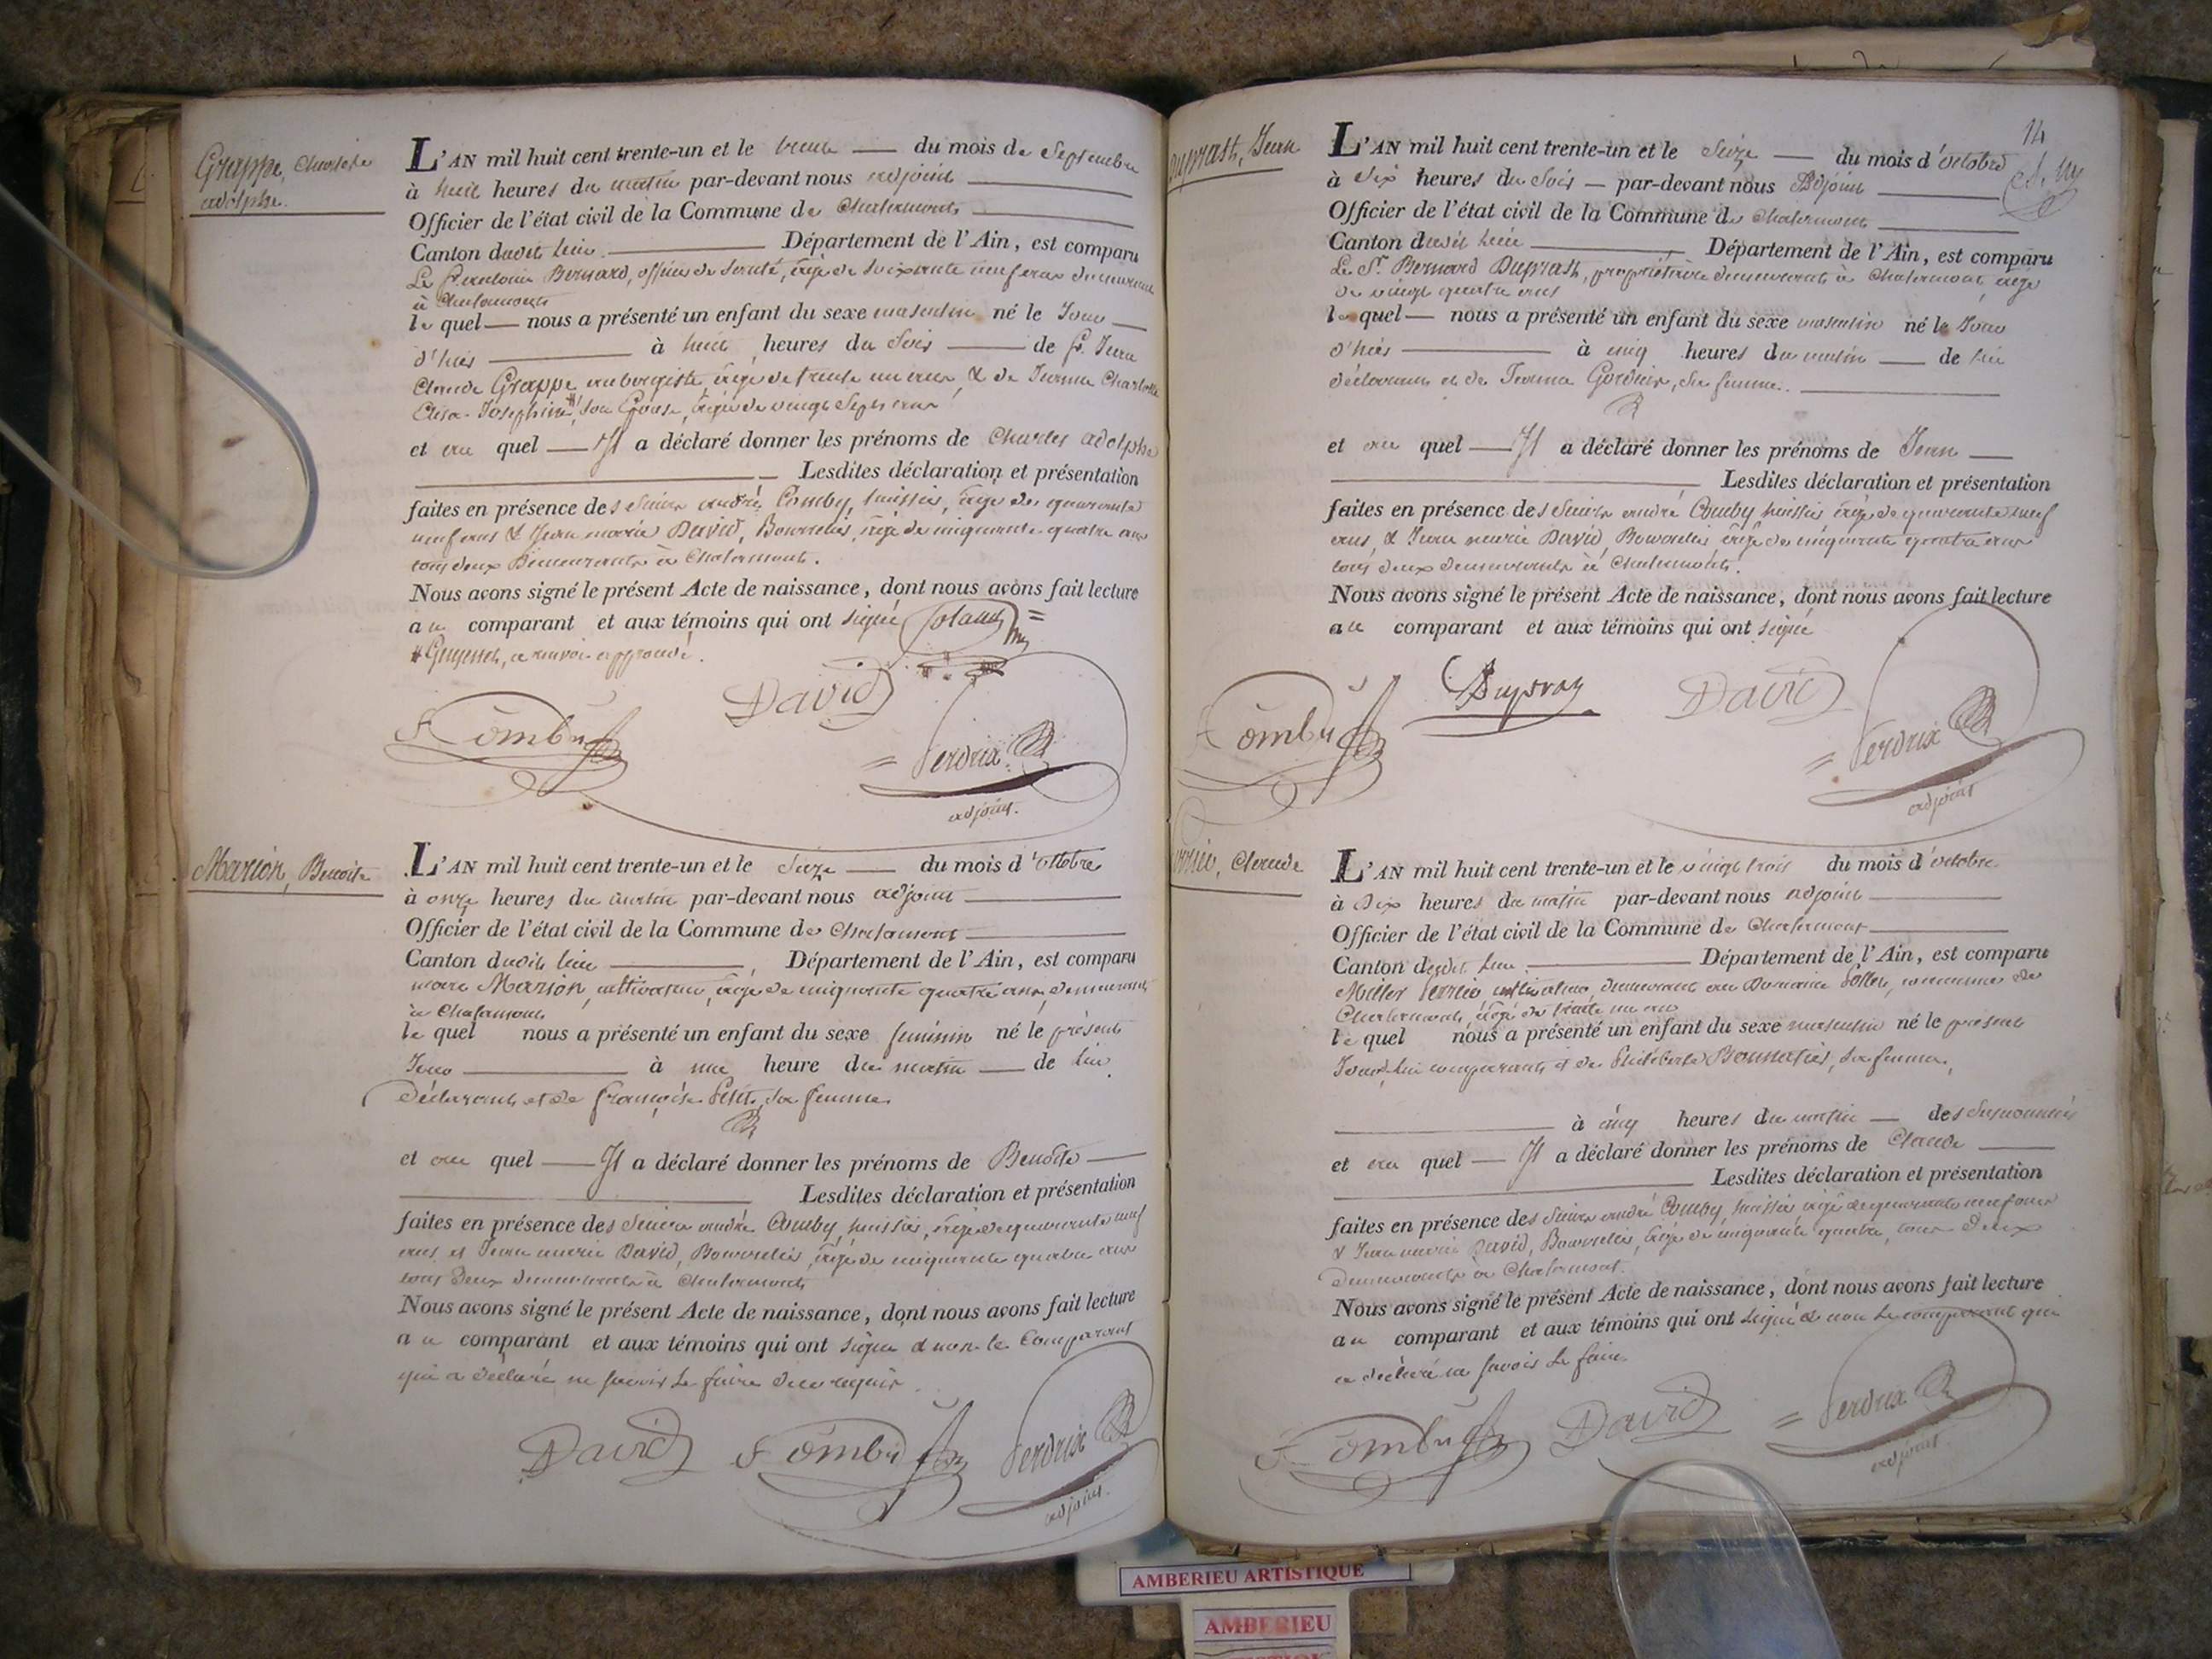 Grappe, Charles
adolphe.
L'AN mil huit cent trente-un et le trente du mois de Septembre
à huit heures du matin par-devant nous adjoint
Officier de l'état civil de la Commune de Chalamont
Canton dudit lieu Département de l'Ain, est comparu
Le Sr. antoine Bernard, officier de Santé, âgé de soixante neuf ans demeurant
à Chalamont
le quel nous a présenté un enfant du sexe masculin né le Jour
d'hier à huit heures du Soir de Sr. Jean
Claude Grappe, aubergiste, âgé de trente un ans, & de Jeanne Charlotte
Elisa-Josephine # son Epouse, âgée de vingt Sept ans
et au quel Il a déclaré donner les prénoms de Charles adolphe
Lesdites déclaration et présentation
faites en présence des Sieurs andré Comby, huissier, âgé de quarante
neuf ans & Jean marie David, Bourrelier, âgé de cinquante quatre ans
tous deux Demeurants à Chalamont.
Nous avons signé le présent Acte de naissance, dont nous avons fait lecture
au comparant et aux témoins qui ont signé
# Guyenet, a renvoi approuvé.
David
Comby
Perdrix
adjoint.
Marion, Benoite
L'AN mil huit cent trente-un et le Seize du mois d'octobre
à onze heures du matin par-devant nous adjoint
Officier de l'état civil de la Commune de Chalamont
Canton dudit lieu Département de l'Ain, est comparu
marc Marion, cultivateur, âgé de cinquante quatre ans, demeurant
à Chalamont
le quel nous a présenté un enfant du sexe feminin né le présent
Jour à une heure du matin de lui
Déclarant et de françoise Petit, sa femme
et au quel Il a déclaré donner les prénoms de Benoite
Lesdites déclaration et présentation
faites en présence des Sieurs andré Comby, huissier, âgé de quarante neuf
ans et Jean marie David, Bourrelier, âgé de cinquante quatre ans
tous Deux demeurants à Chalamont
Nous avons signé le présent Acte de naissance, dont nous avons fait lecture
au comparant et aux témoins qui ont signé & non le Comparant
qui a déclaré ne savoir le faire de ce requis.
David Comby Perdrix
adjoint.
14
Duprast, Jean
L'AN mil huit cent trente-un et le Seize du mois d'octobre
à Six heures du Soir par-devant nous Adjoint
Officier de l'état civil de la Commune de Chalamont
Canton dudit lieu Département de l'Ain, est comparu
Le Sr. Bernard Duprast, propriétaire demeurant à Chalamont, âgé
de vingt quatre ans
le quel nous a présenté un enfant du sexe masculin né le Jour
d'hier à cinq heures du matin de lui
déclarant et de Jeanne Gordier, sa femme.
et au quel Il a déclaré donner les prénoms de Jean
Lesdites déclaration et présentation
faites en présence des Sieurs andré Comby huissier âgé de quarante neuf
ans, & Jean marie David, Bourrelier âgé de cinquante quatre ans
tous deux demeurants à Chalamont.
Nous avons signé le présent Acte de naissance, dont nous avons fait lecture
au comparant et aux témoins qui ont signé
Comby Dupras David
Perdrix
adjoint
Claude
L'AN mil huit cent trente-un et le vingt trois du mois d'octobre
à Dix heures du matin par-devant nous adjoint
Officier de l'état civil de la Commune de Chalamont
Canton dudit lieu Département de l'Ain, est comparu
cultivateur, demeurant au Domaine commune de
Chalamont, âgé de trente un ans
le quel nous a présenté un enfant du sexe masculin né le présent
Jour, lui comparant et de Philiberte sa femme,
à cinq heures du matin des Susnommés
et au quel Il a déclaré donner les prénoms de Claude
Lesdites déclaration et présentation
faites en présence des Sieurs andré Comby huissier âgé de quarante neuf ans
& Jean marie David, Bourrelier, âgé de cinquante quatre, tous deux
Demeurants à Chalamont.
Nous avons signé le présent Acte de naissance, dont nous avons fait lecture
au comparant et aux témoins qui ont signé & non le comparant qui
a déclaré ne savoir le faire
Comby David Perdrix
adjoint
AMBERIEU ARTISTIQUE
AMBERIEU